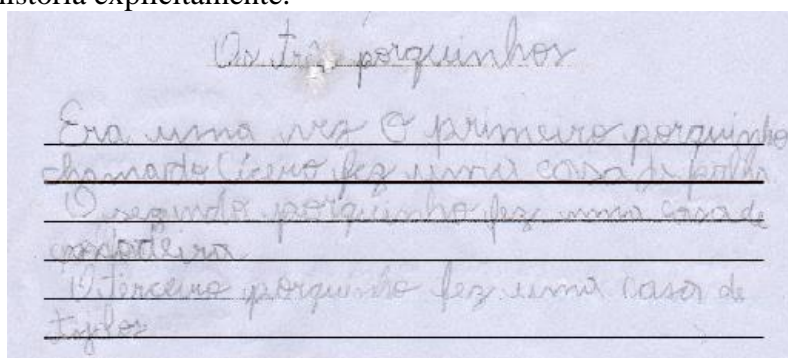 história explicitamente.
Os três porquinhos
Era uma vez O primeiro porquinho
chamado Cícero fez uma casa de palha
O segundo porquinho fez uma casa de
O terceiro porquinho fez uma casa de
tijolos